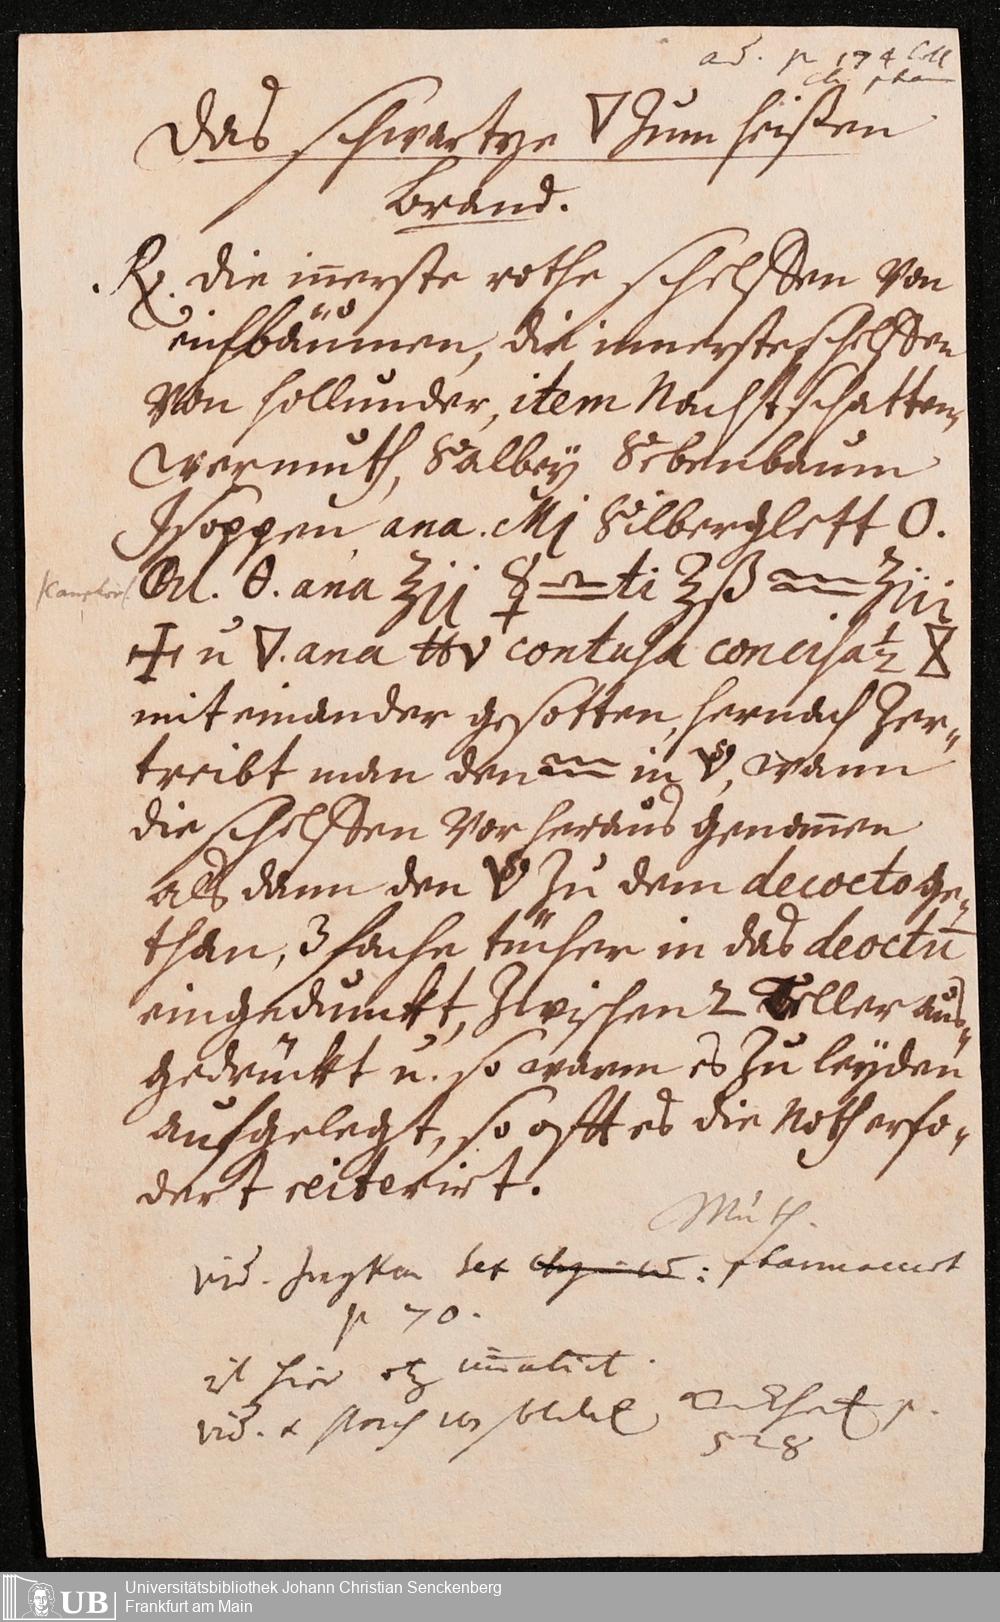 ad. p 174 Coll
ch. pharm
Das schwartze 🜄 Zum heißen
Brand.
℞. die iñerste rothe schelffen von
eichbäumen, die innerste schelffen
von hollunder, item Nachtschatten,
wermuth, Salbey Sebenbaum
Jsoppen, ana. Mj Silberglett O.
O. θ. ana ʒij ti ʒß ʒiij
u ▽. ana contusa concisa ½
mit einander gesotten, hernach Zer-
treibt man den in , wann
die schelffen vor heraus genom̄en
alß dann den Zu dem decocto ge-
than, 3 fache tücher in das deoctū
eingedunckt, Zwischen 2 Teller aus-
gedrückt u. so warm es Zu leyden
aufgelegt, so offt es die Noth erfo-
dert reiterirt.
Muth.
vid. Lex : pharmaceut
p 70.
ist hier etz
vid. p.
528
Universitätsbibliothek Johann Christian Senckenberg
UB Frankfurt am Main